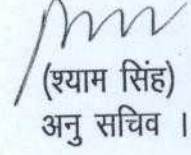 (श्याम सिंह)
अनु सचिव ।